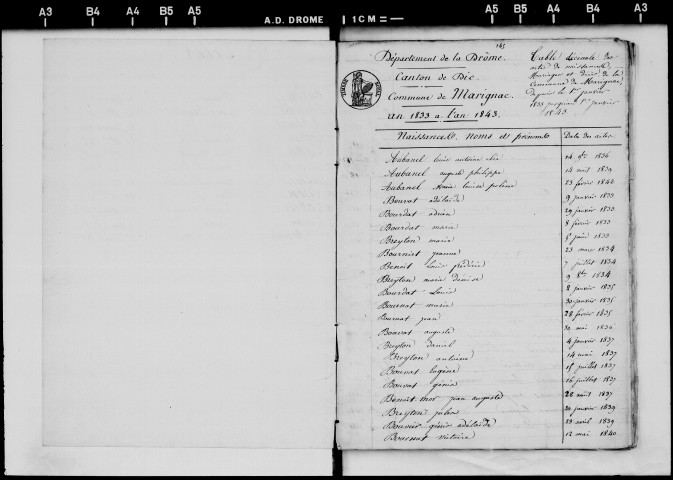 A3 B4 A4 B5 A5 A.D. DROME 1 CM A5 B5 A4 B4 A3
145
Département de la Drôme.
Canton de Die.
Commune de Marignac.
an 1833 a l'an 1843.
Table décennale des
actes de naissances,
Mariages et décès de la
Commune de Marignac,
Depuis le 1er janvier
1833 jusqu'au 1er janvier
1843.
Naissances. noms et prénoms Date des actes
Aubanel louis antoine 14 9bre 1836
Aubanel auguste philippe 14 août 1839
Aubanel Marie louise 23 février 1842
Bouvat adélaïde 9 janvier 1833
Bourdat adrien 29 janvier 1833
Bourdat marie 8 février 1833
Breyton marie juin 1833
jeanne 23 mars 1834
Benoit Louis frédéric 7 juillet 1834
Breyton marie 9 8bre 1834
Bourdat Louis 2 janvier 1835
Bournat marie 30 janvier 1835
Bournat jean 28 février 1835
Bouvat auguste 30 mai 1836
Breyton daniel 4 janvier 1837
Breyton antoine 14 mai 1837
Bouvat Eugène 15 juillet 1837
Bouvat génie 16 juillet 1837
Benoit jean auguste 28 août 1837
Breyton julie 20 janvier 1839
Bouvier génie adélaïde 23 avril 1839
Bournat victoire 12 mai 1840